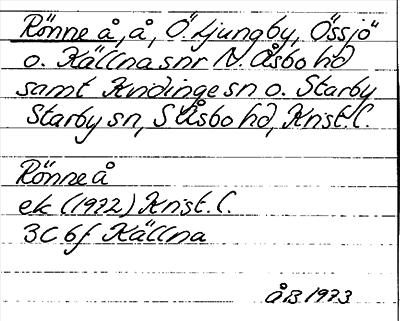 Rönne å, å, Ö. Ljungby, Össjö
o. Källna snr N. Åsbo hd
samt Kvidinge sn o. Starby
Starby sn, S Åsbo hd, Krist. l.
Rönne å
ek (1972) Krist. l.
3C 6f Källna
ÅB 1973